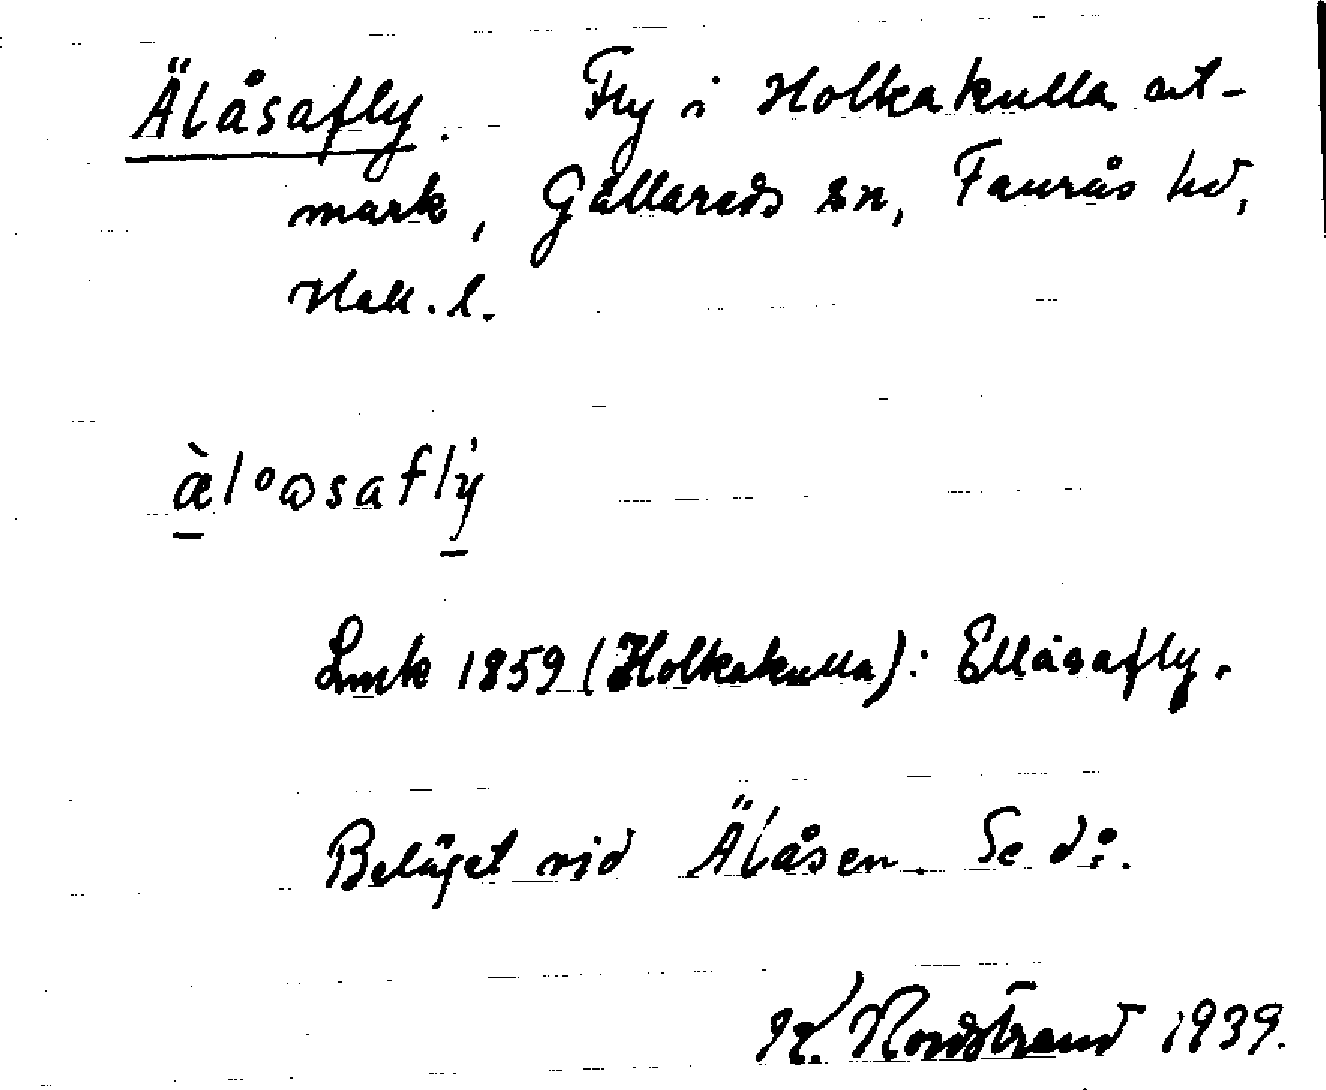 Älåsafly. Fly i Holkakulla ut-
mark, Gällareds sn, Faurås hd,
Hall. l.
æ̀lºɷsaflẏ
Lmk 1859 (Holkakulla): Ellåsafly.
Beläget vid Älåsen. Se d:o.
K. Nordstrand 1939.